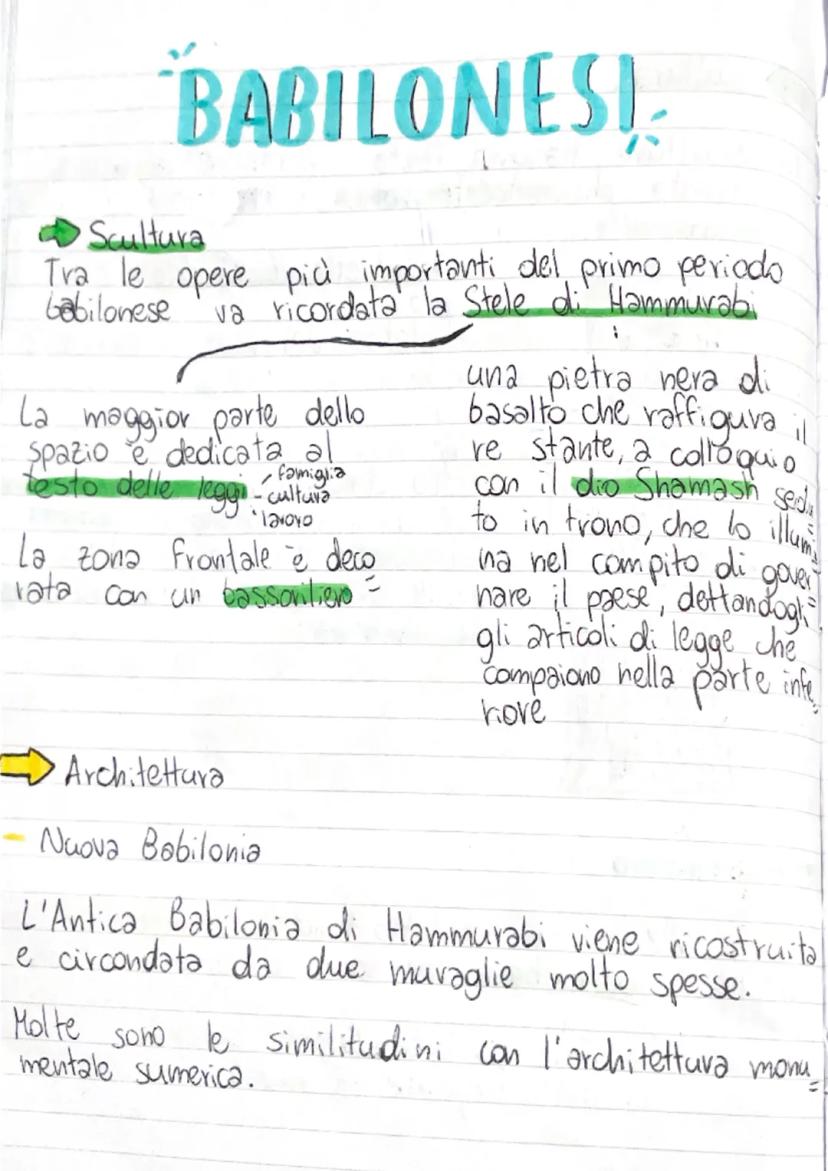 BABILONESI
Scultura
Tra le opere più importanti del primo periodo
babilonese va ricordata la Stele di Hammurabi
La maggior parte dello
spazio è dedicata al
testo delle leggi - famiglia
- cultura
- lavoro
La zona frontale è deco
rata con un bassorilievo =
una pietra nera di
basalto che raffigura il
re stante, a colloquio
con il dio Shamash sedu
to in trono, che lo illumi
na nel compito di gover
nare il paese, dettandogli
gli articoli di legge che
compaiono nella parte infe
riore
Architettura
- Nuova Babilonia
L'Antica Babilonia di Hammurabi viene ricostruita
e circondata da due muraglie molto spesse.
Molte sono le similitudini con l'architettura monu=
mentale sumerica.